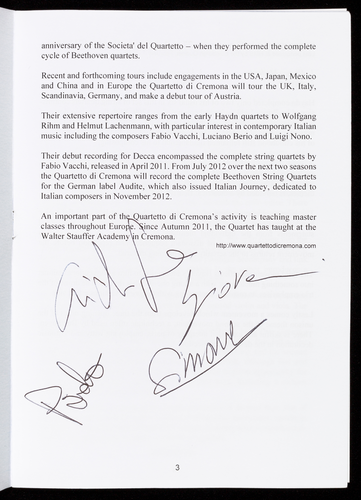 anniversary of the Societa' del Quartetto – when they performed the complete
cycle of Beethoven quartets.
Recent and forthcoming tours include engagements in the USA, Japan, Mexico
and China and in Europe the Quartetto di Cremona will tour the UK, Italy,
Scandinavia, Germany, and make a debut tour of Austria.
Their extensive repertoire ranges from the early Haydn quartets to Wolfgang
Rihm and Helmut Lachenmann, with particular interest in contemporary Italian
music including the composers Fabio Vacchi, Luciano Berio and Luigi Nono.
Their debut recording for Decca encompassed the complete string quartets by
Fabio Vacchi, released in April 2011. From July 2012 over the next two seasons
the Quartetto di Cremona will record the complete Beethoven String Quartets
for the German label Audite, which also issued Italian Journey, dedicated to
Italian composers in November 2012.
An important part of the Quartetto di Cremona's activity is teaching master
classes throughout Europe. Since Autumn 2011, the Quartet has taught at the
Walter Stauffer Academy in Cremona.
http://www.quartettodicremona.com
Simone
Paolo
3